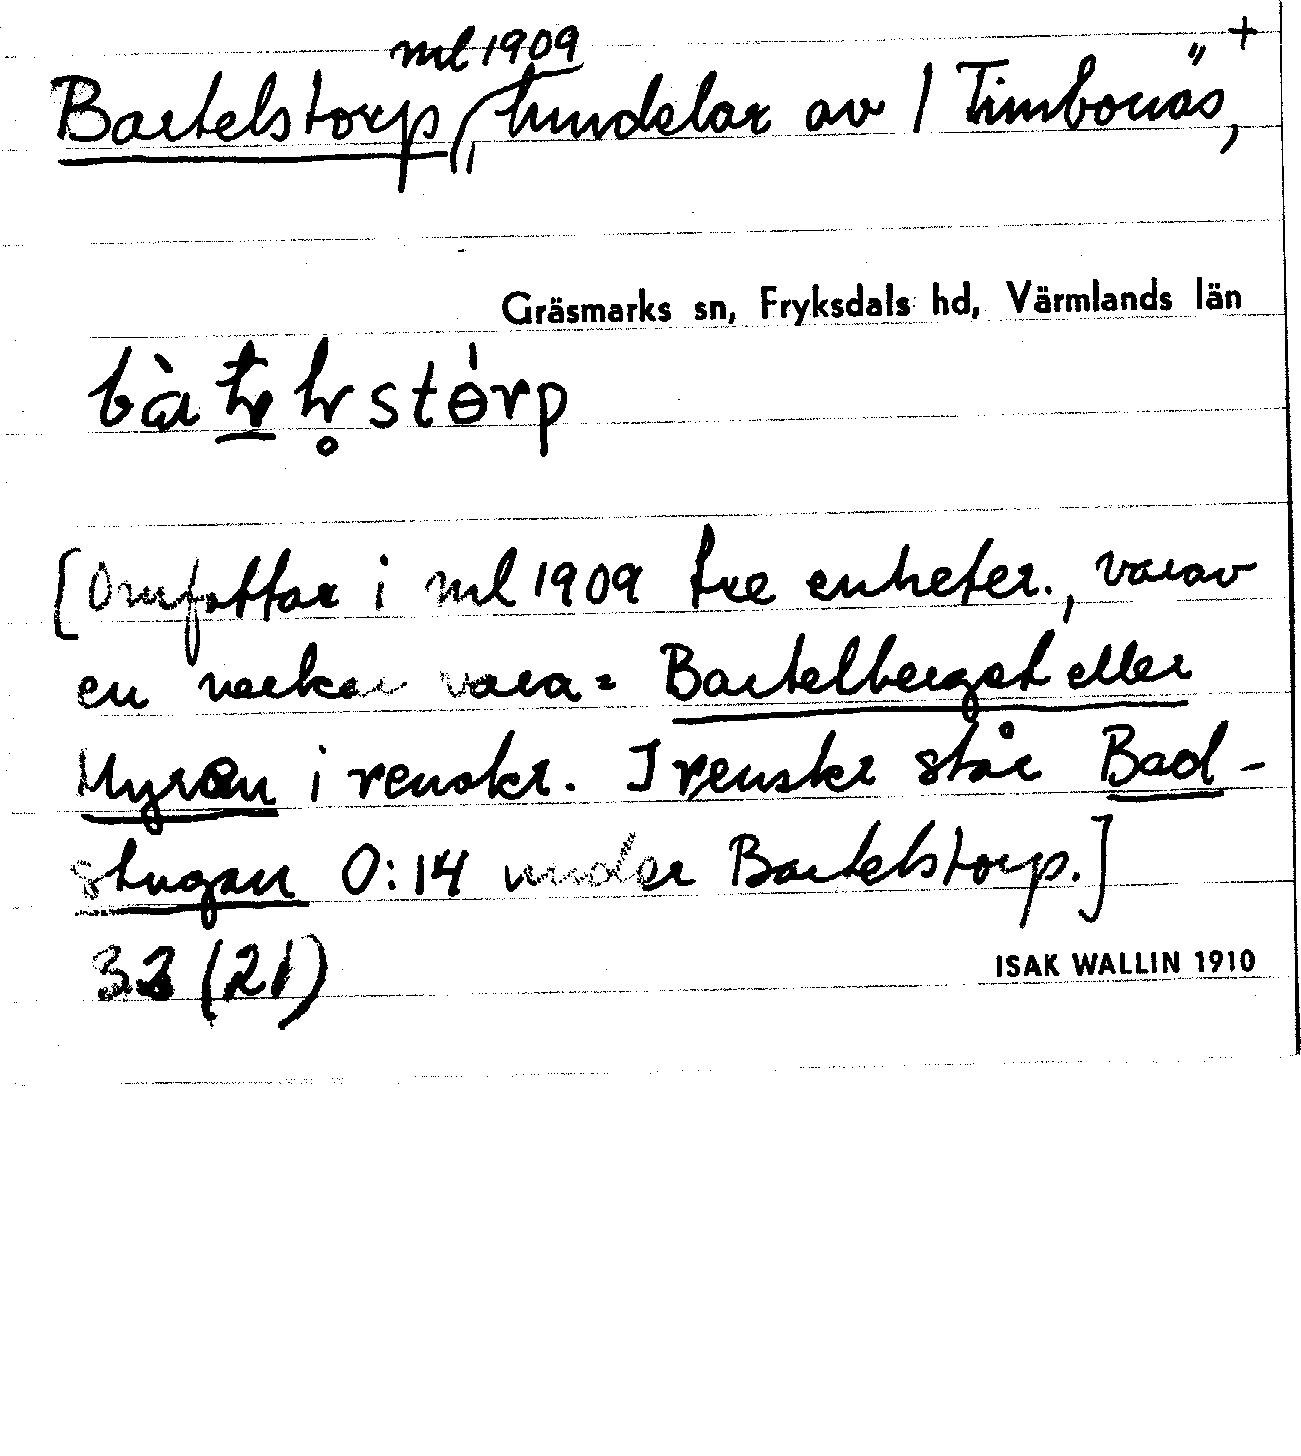 ml 1909 +
Bartelstorp, hmdelar av 1 Timbonäs,
Gräsmarks sn, Fryksdals hd, Värmlands län
[Omfattar i ml 1909 tre enheter., varav
en verkar vara = Bartelberget eller
Myren i renskr. I renskr står Bad-
stugan 0:14 under Bartelstorp.]
33 (21)
ISAK WALLIN 1910